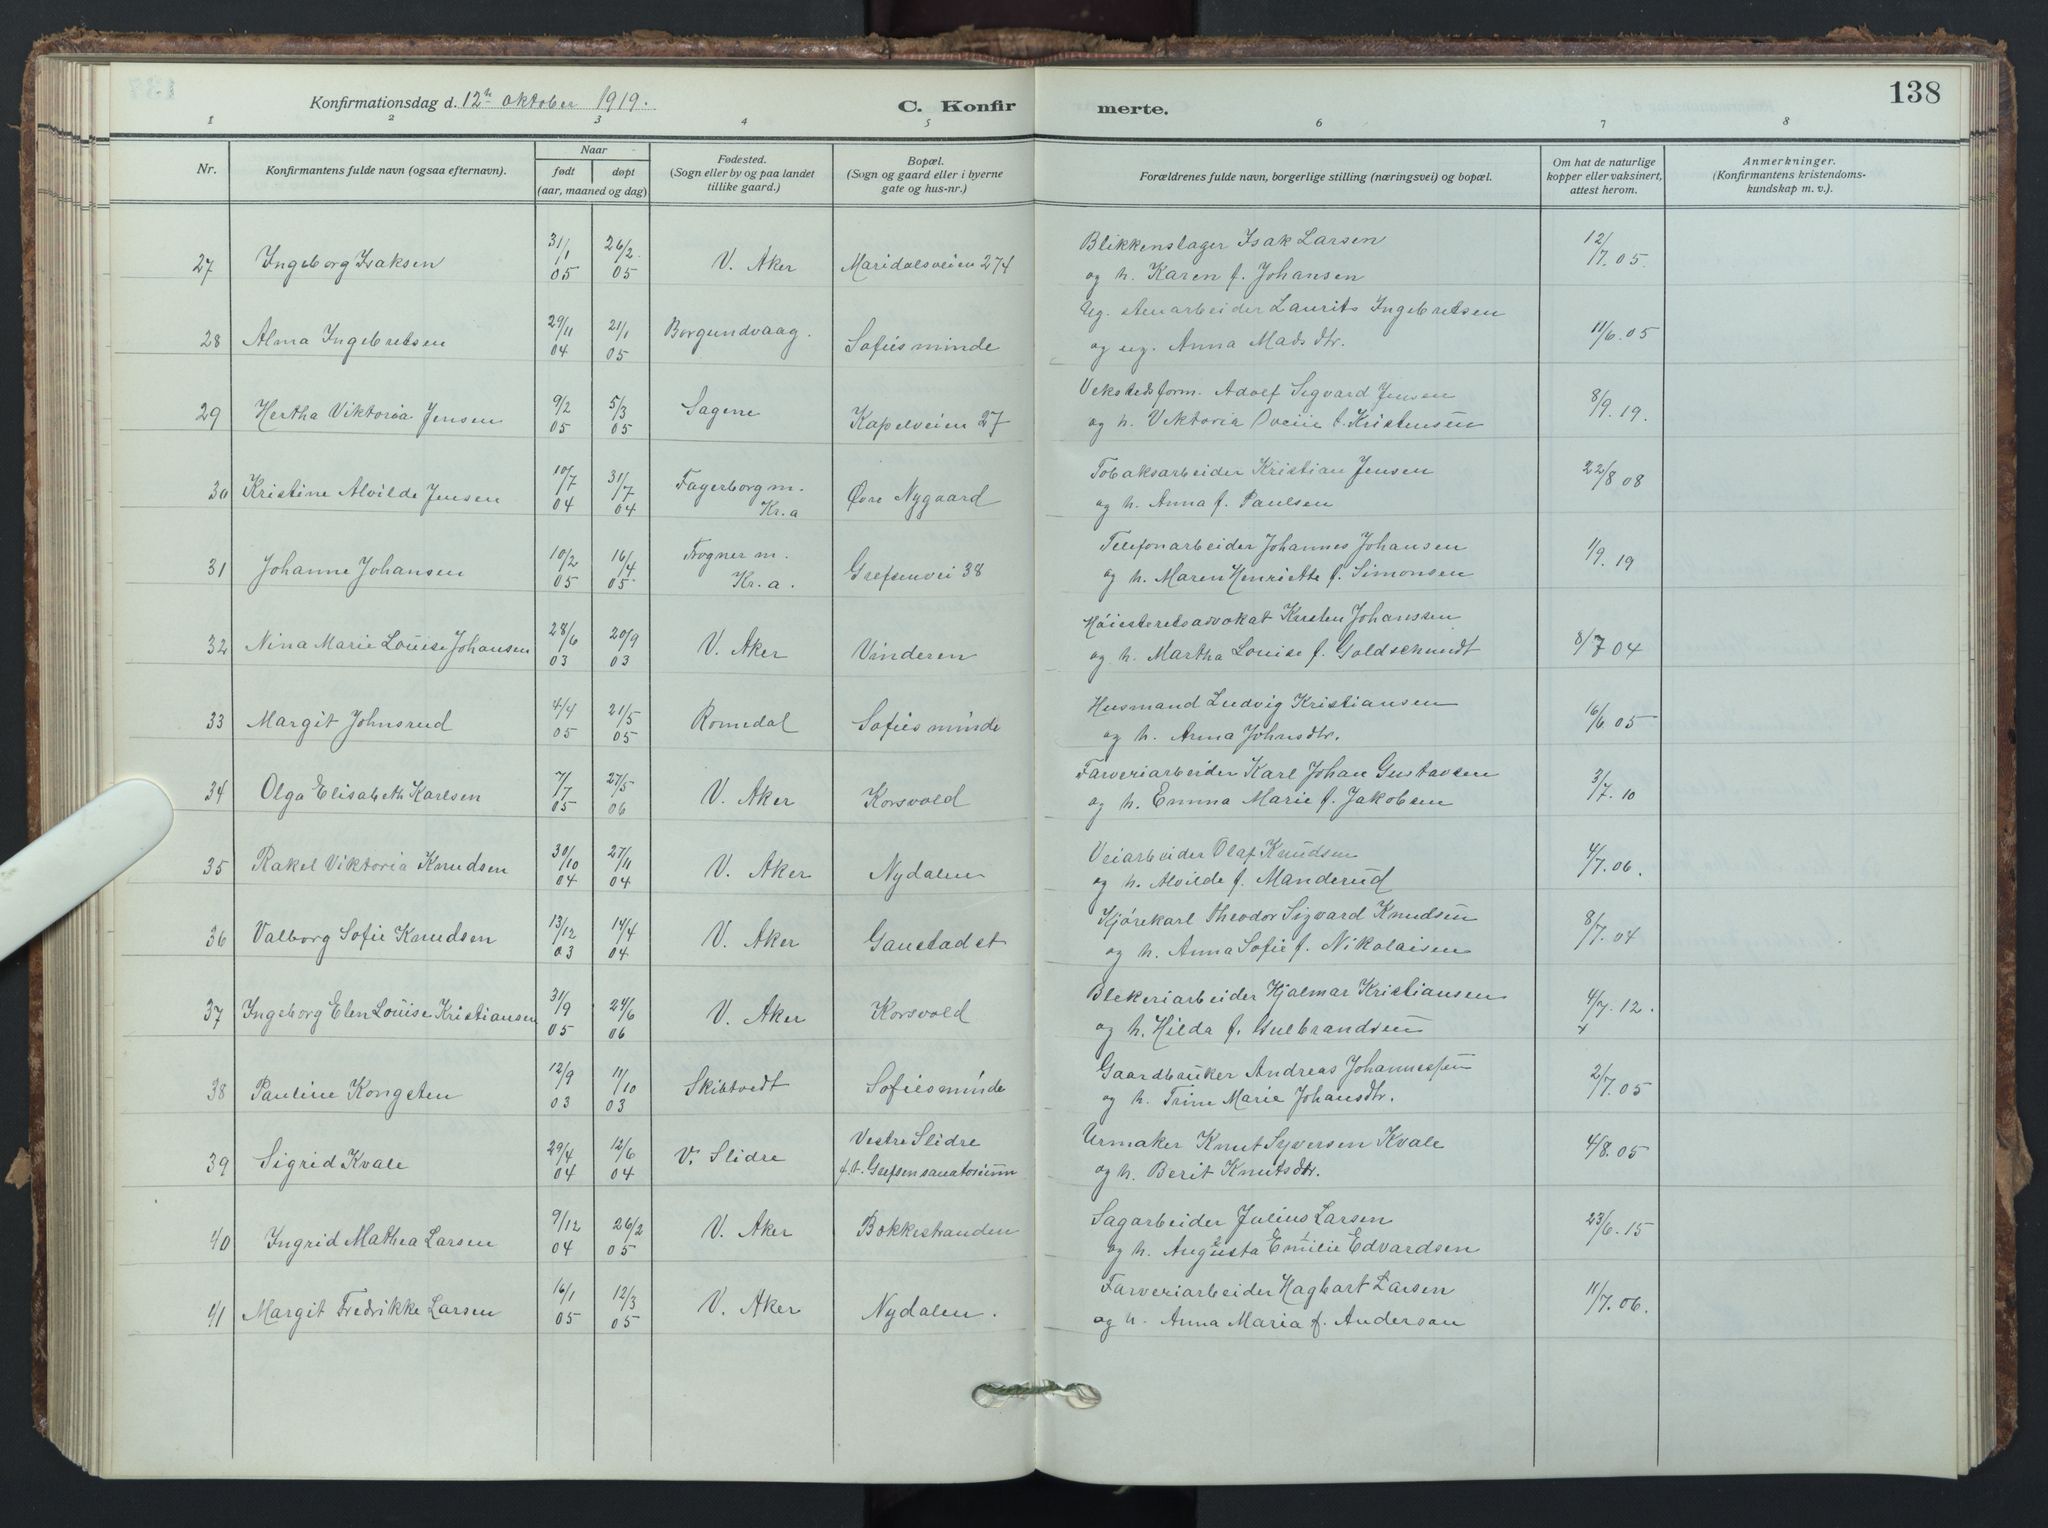 138
Konfirmationsdag d. 12te oktober 1919.
C. Konfirmerte.
1 2 3 4 5 6 7 8
Nr.
Konfirmantens fulde navn (ogsaa efternavn).
Naar
født
døpt
(aar, maaned og dag)
Fødested.
(Sogn eller by og paa landet
tillike gaard.)
Bopæl.
(Sogn og gaard eller i byerne
gate og hus-nr.)
Forældrenes fulde navn, borgerlige stilling (næringsvei) og bopæl.
Om hat de naturlige
kopper eller vaksinert,
attest herom.
Anmerkninger.
(Konfirmantens kristendoms-
kundskap m. v.).
27 Ingeborg Isaksen 31/1 05 26/2 05 V. Aker Maridalsveien 274 Blikkenslager Isak Larsen
og h. Karen f. Johansen 12/7.05.
28 Alma Ingebretsen 29/11 04 21/1 05 Borgundvaag. Sofies minde Ug. stenarbeider Laurits Ingebretsen
og ug. Anna Mads dtr. 11/6.05
29 Hertha Viktoria Jensen 9/2 05 5/3 05 Sagene Kapelveien 27 Vekstedsform. Adolf Sigvard Jensen
og h. Viktoria f. Kristensen 8/9.19.
30 Kristine Alvilde Jensen 10/7 04 31/7 04 Fagerborg m. Kr.a Øvre Nygaard Tobaksarbeider Kristian Jensen
og h. Anna f. Paulsen 22/8 08
31 Johanne Johansen 10/2 05 16/4 05. Frogner m. Kr.a. Grefsenvei 38 Telefonarbeider Johannes Johansen
og h. Maren Henriette f. Simonsen 1/9.19
32 Nina Marie Louise Johansen 28/6 03 20/9 03 V. Aker Vinderen Høiesteretsadvokat Kersten Johanssen
og h. Martha Louise f. Goldschmidt 8/7 04
33 Margit Johnsrud 4/4 05 21/5 05 Romedal Sofies minde Husmand Ludvig Kristiansen
og h. Anna Johnsdtr. 16/6 05
34 Olga Elisabeth Karlsen 7/7 05 27/5 06 V. Aker Korsvold Farveriarbeider Karl Johan Gustavsen
og h. Emma Marie f. Jakobsen 3/7.10
35 Rakel Viktoria Knudsen 30/10 04 27/11 04 V. Aker Nydalen Veiarbeider Olaf Knudsen
og h. Alvilde f. Manderud 4/7.06.
36 Valborg Sofie Knudsen 13/12 03 14/4 04 V. Aker Gaustadet Kjørekarl Theodor Sigvard Knudsen
og h. Anna Sofie f. Nikolaisen 8/7.04
37 Ingeborg Elen Louise Kristiansen 31/9 05 24/6 06 V. Aker Korsvold Blekeriarbeider Hjalmar Kristiansen
og h. Hilda f. Gulbrandsen 4/7.12.
38 Pauline Kongsten 12/9 03 11/10 03 Skibtvedt Sofiesminde Gaardbruker Andreas Johannessen
og h. Trine Marie Johansdtr. 2/7.05
39 Sigrid Kvale 29/4 04 12/6 04 V. Slidre Vestre Slidre
f.t. Grefsensanatorium Urmaker Knut Syversen Kvale
og h. Berit Knutsdtr. 4/8.05
40 Ingrid Mathea Larsen 9/12 04 26/2 05 V. Aker Bakkestranden Sagarbeider Julius Larsen
og h. Augusta Emilie Edvardsen 23/6.15
41 Margit Fredrikke Larsen 16/1 05 12/3 05 V. Aker Nydalen. Farveriarbeider Hagbart Larsen
og h. Anna Maria f. Anderson 11/7.06.